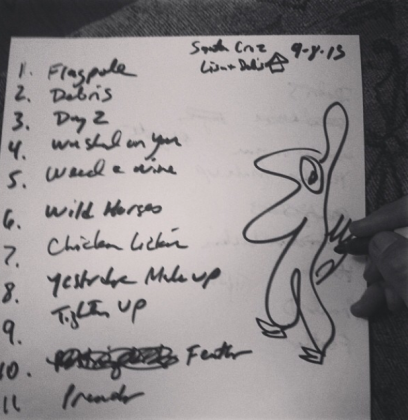 Santa Cruz 9-8-13
Lisa + Debris
1. Flagpole
2. Debris
3. Day 2
4. washed on you
5. Weed & wine
6. Wild Horses
7. Chicken Lickin
8. Yesterdre Make up
9. Tighten up
10. Feather
11